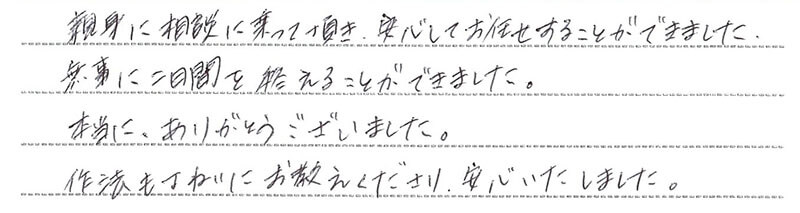 親身に相談に乗って頂き、安心してお任せすることができました.
無事に二日間を終えることができました。
本当に、ありがとうございました。
作法もていねいにお教えくださり、安心いたしました。